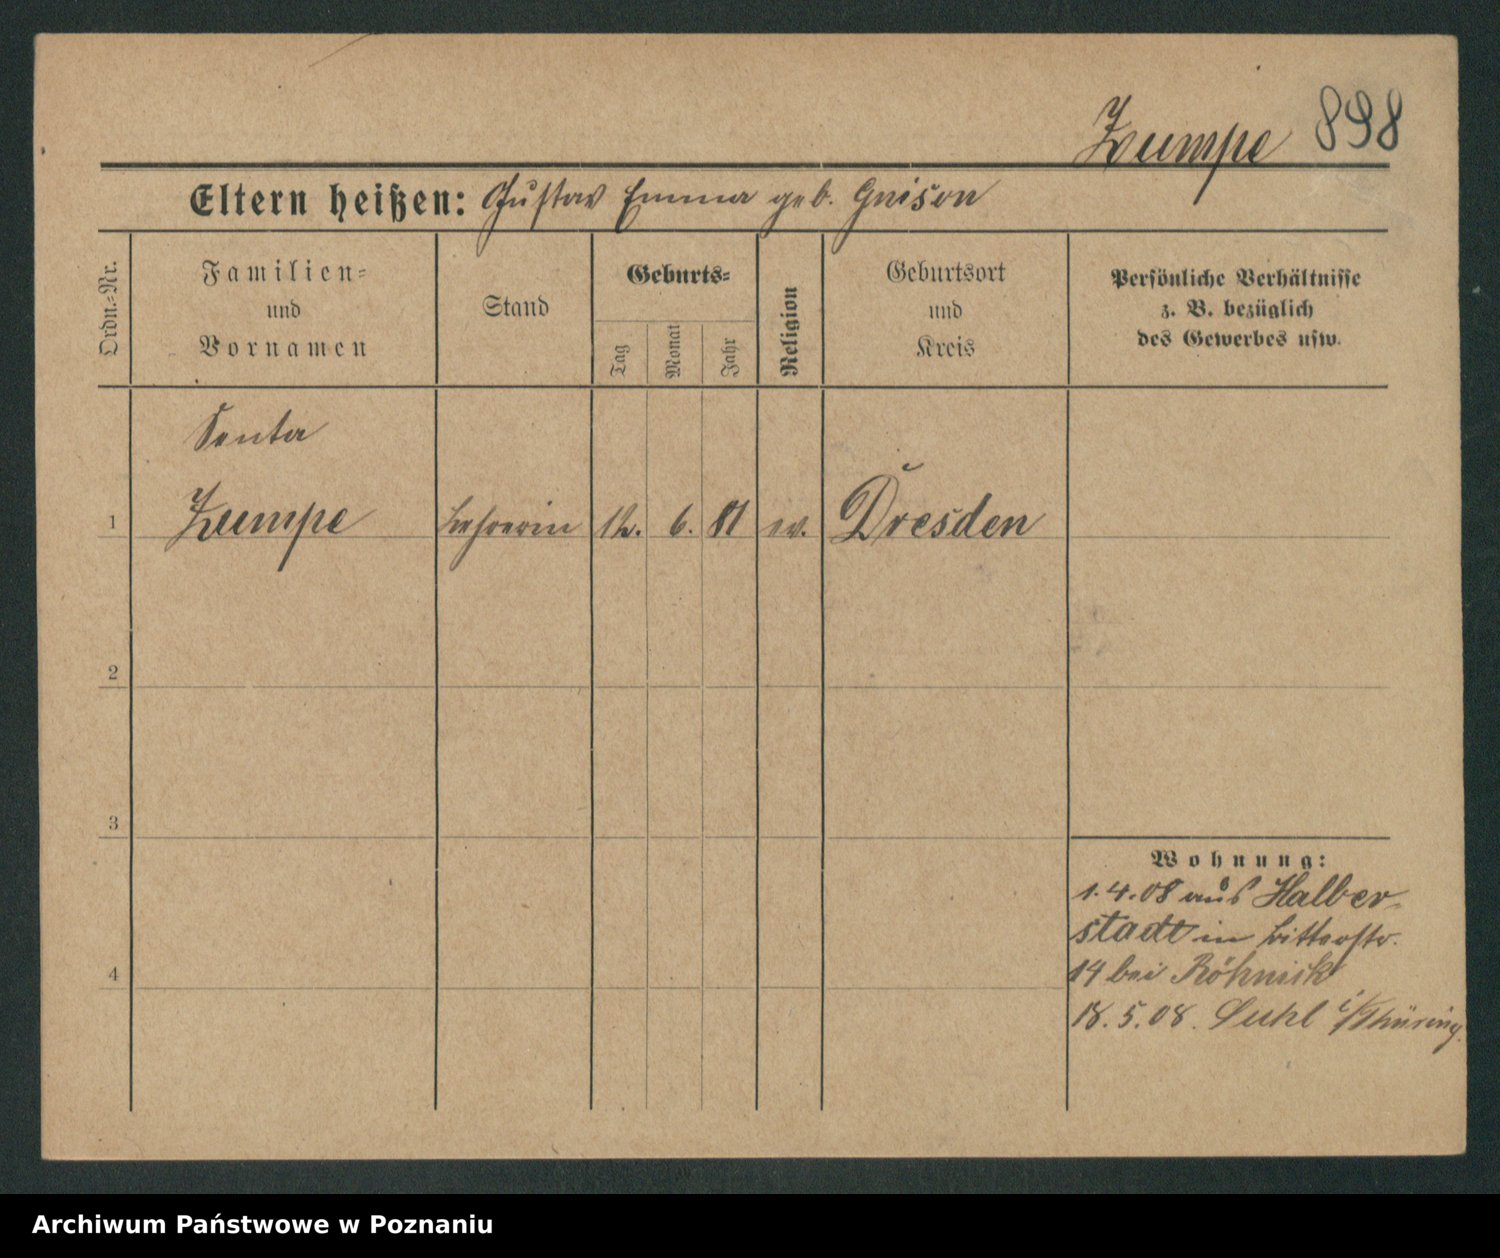 Zumpe 898
Eltern heißen: Gustav Emma geb.
Ordn.-Nr.
Familien-
und
Vornamen
Stand
Geburts-
Tag
Monat
Jahr
Religion
Geburtsort
und
Kreis
Persönliche Verhältnisse
z. B. bezüglich
des Gewerbes usw.
Senta
1 Zumpe Lehrerin 12. 6. 81 ev. Dresden
2
3
4
Wohnung:
1.4.08 aus Halber-
stadt in Ritterstr.
14 bei
18.5.08. Suhl i/Thüring.
Archiwum Państwowe w Poznaniu